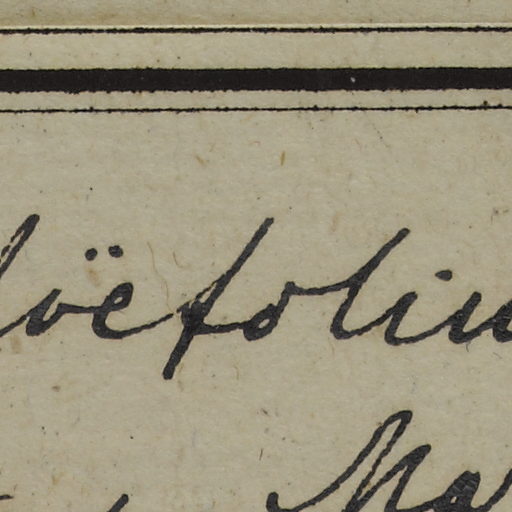 loëfoliu
Ma